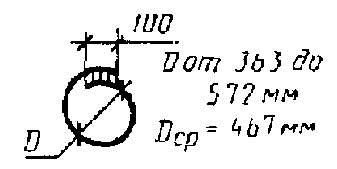 100
D от 363 до
572 мм
Dср = 467 мм
D